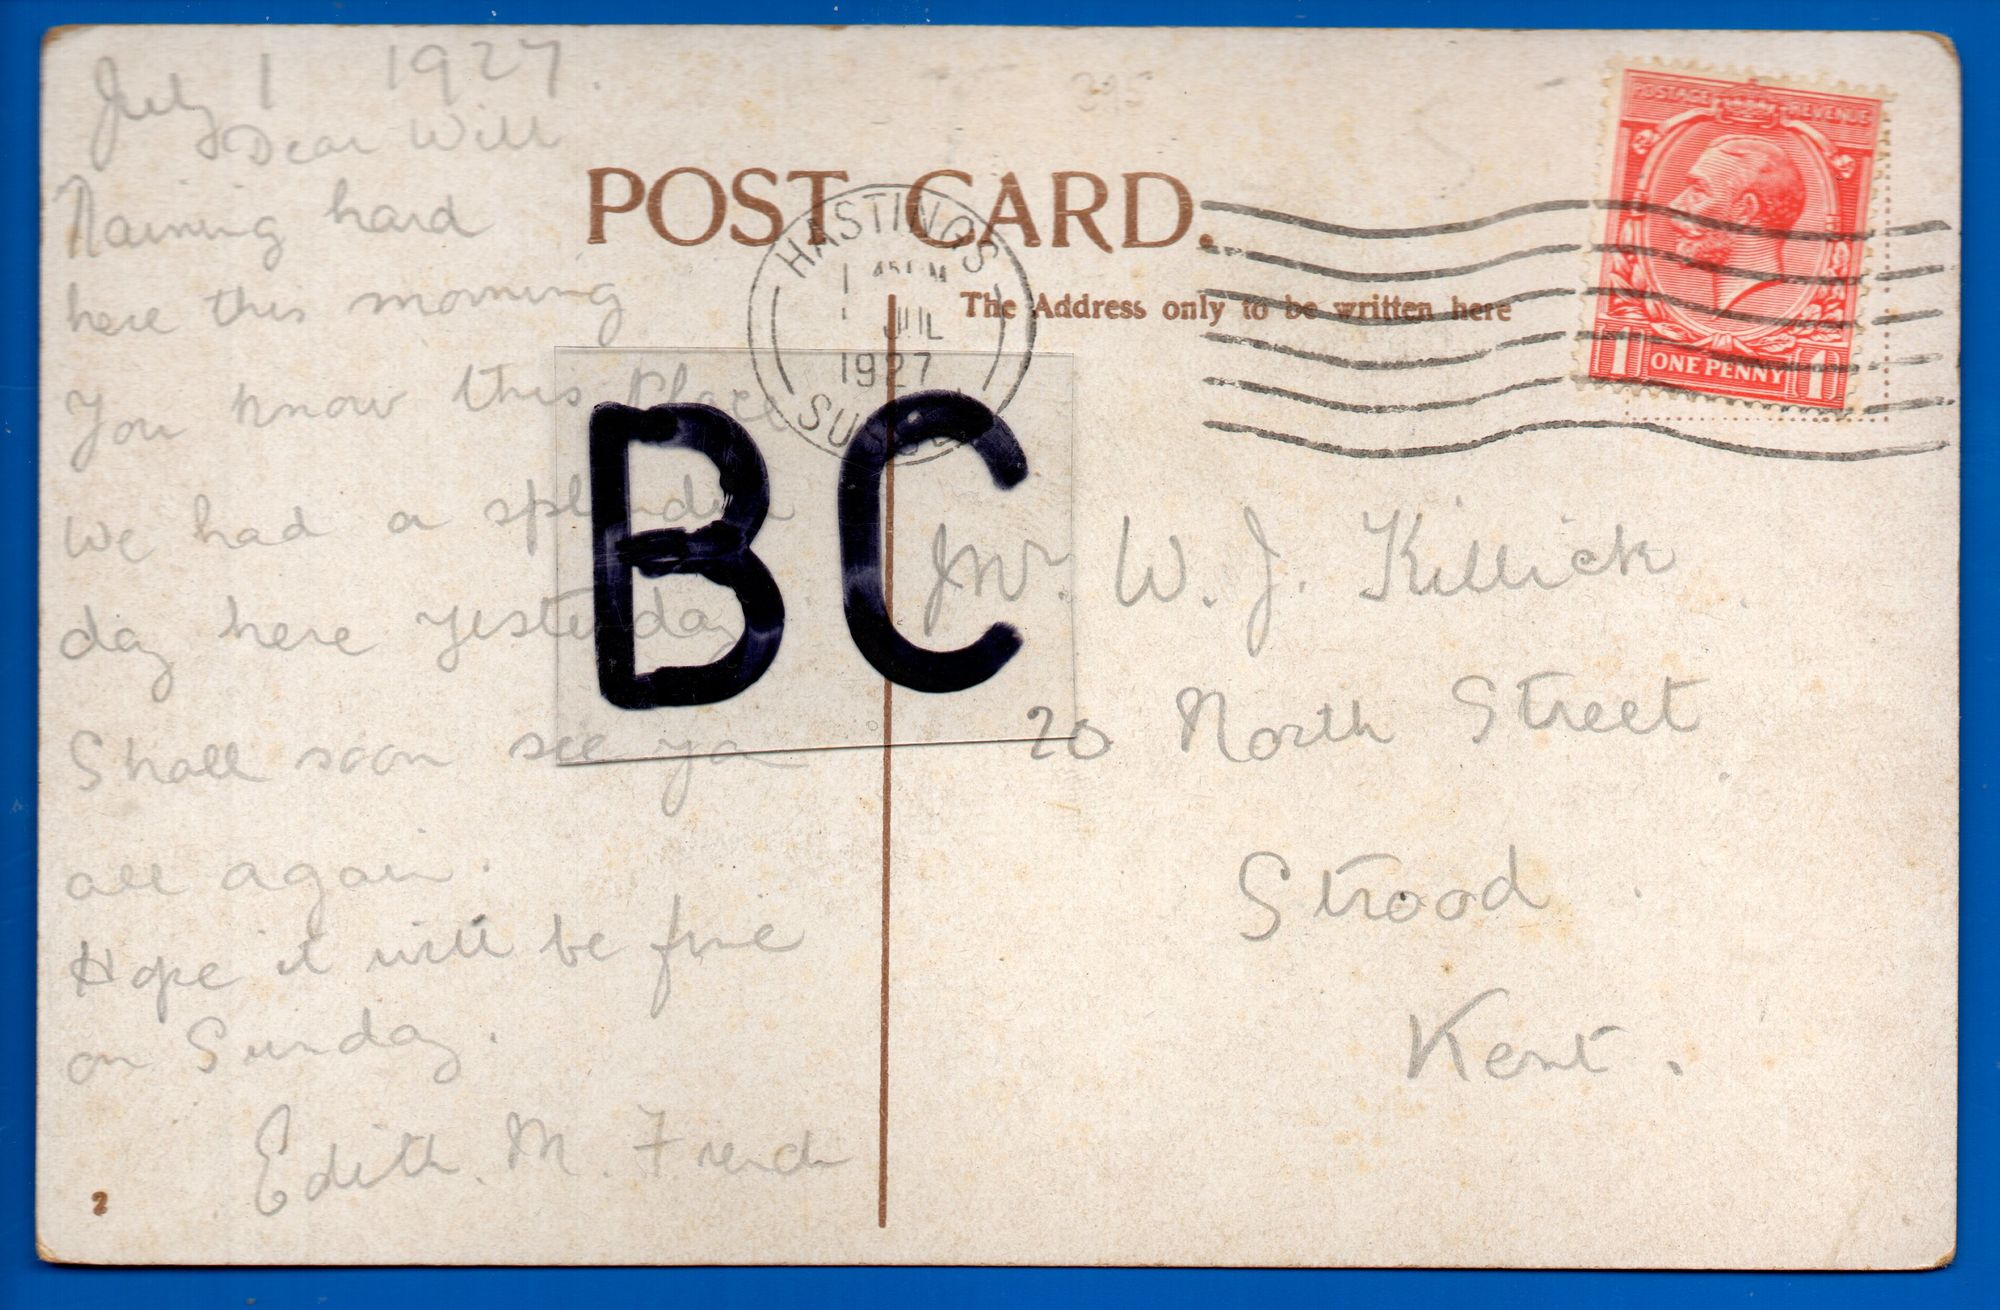 July 1 1927.
Dear Will
Raining hard
here this morning
You know this Place
We had a splendid
day here yesterday
Shall soon see ya
all again.
Hope it will be fine
on Sunday.
Edith. M. French
2
POST CARD.
The Address only to be written here
HASTINGS
JUL
1927
SUSSEX
BC
POSTAGE REVENUE
1 ONE PENNY 1
Mr. W. J. Killick
20 North Street
Strood
Kent.